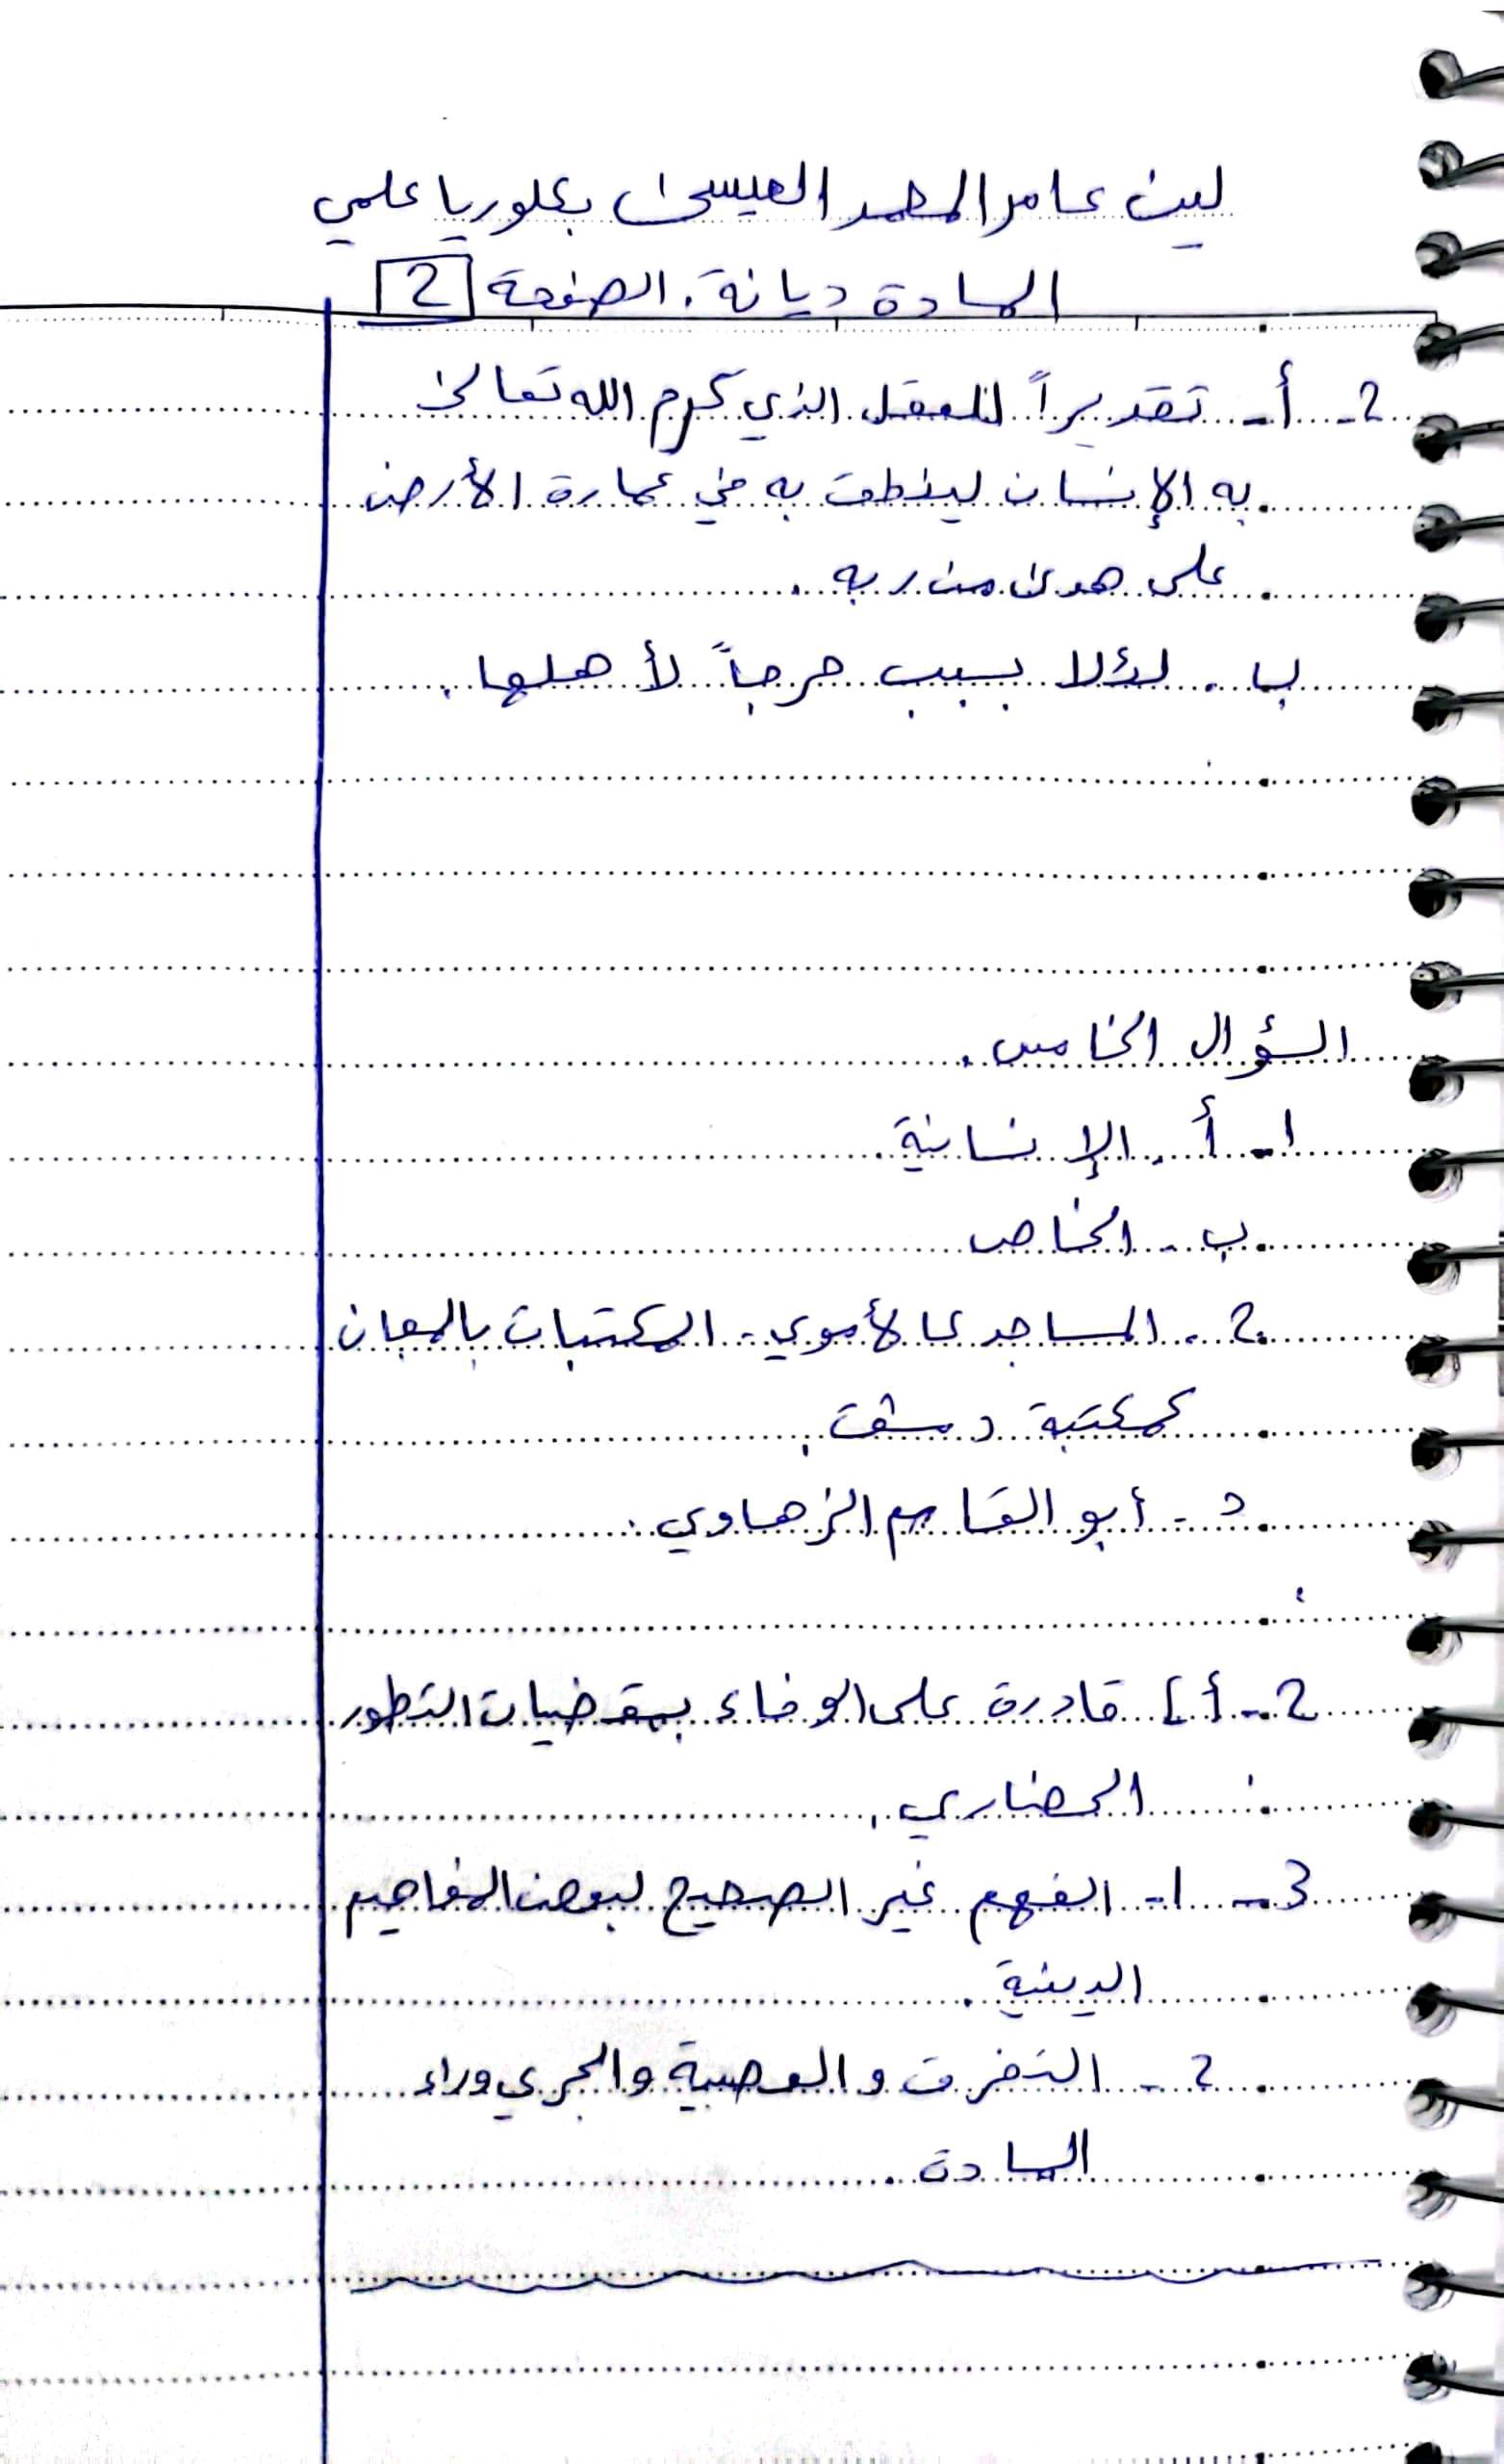 لين عامر المحمد العيسى بكلوريا علمي
المادة ديانة. الصفحة 2
2- أ- تقديراً للعقل الذي كرم الله تعالى
به الإنسان لينطلق به في عمارة الأرض
على هدى من ربه.
ب. لئلا يسبب حرجاً لأهلها.
السؤال الخامس.
1- أ. الإنسانية.
ب. الخاص
2. المساجد كالأموي - المكتبات بالمجان
كمكتبة دمشق.
د - أبو القاسم الزهاوي.
2- أ] قادرة على الوفاء بمقضيات التطور
الحضاري.
3- 1- الفهم غير الصحيح لبعض المفاهيم
الدينية.
2- التفرق والعصبية والجري وراء
المادة.